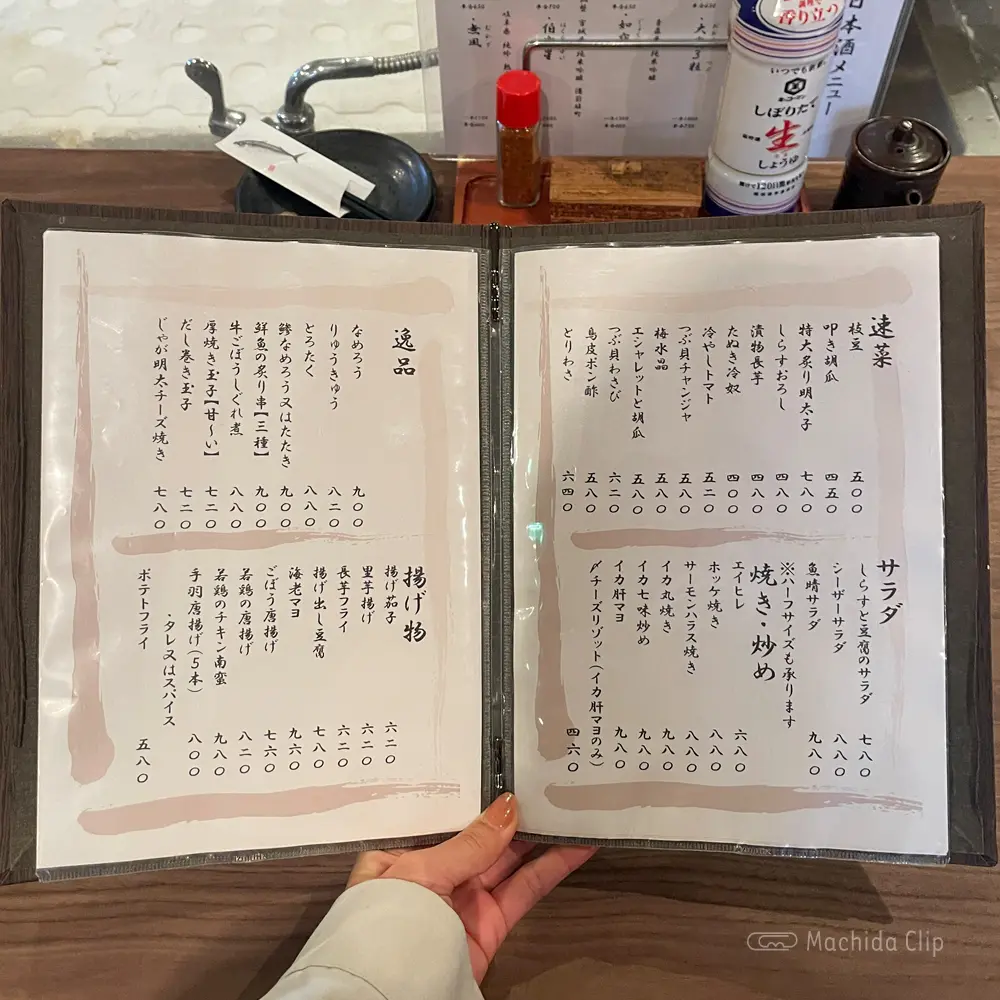 速菜
枝豆 五〇〇
叩き胡瓜 四五〇
特大炙り明太子 七八〇
しらすおろし 四八〇
漬物長芋 四八〇
たぬき冷奴 四〇〇
冷やしトマト 五二〇
つぶ貝チャンジャ 五八〇
梅水晶 五八〇
エシャレットと胡瓜 六二〇
つぶ貝わさび 五八〇
鳥皮ポン酢 五八〇
とりわさ 六四〇
サラダ
しらすと豆腐のサラダ 七八〇
シーザーサラダ 八八〇
魚晴サラダ 九八〇
※ハーフサイズも承ります
焼き・炒め
エイヒレ 六八〇
ホッケ焼き 八八〇
サーモンハラス焼き 八八〇
イカ丸焼き 九八〇
イカ七味炒め 九八〇
イカ肝マヨ 九八〇
〆チーズリゾット(イカ肝マヨのみ) 四六〇
逸品
なめろう 九〇〇
りゅうきゅう 八二〇
とろたく 八八〇
鯵なめろう又はたたき 九〇〇
鮮魚の炙り串【三種】 九〇〇
牛ごぼうしぐれ煮 八八〇
厚焼き玉子【甘〜い】 七二〇
だし巻き玉子 七二〇
じゃが明太チーズ焼き 七八〇
揚げ物
揚げ茄子 六二〇
里芋揚げ 六二〇
長芋フライ 六二〇
揚げ出し豆腐 七八〇
海老マヨ 九六〇
ごぼう唐揚げ 七六〇
若鶏の唐揚げ 八二〇
若鶏のチキン南蛮 九八〇
手羽唐揚げ(5本) 八〇〇
・タレ又はスパイス
ポテトフライ 五八〇
日本酒メニュー
香り立つ
いつでも新鮮
しぼりたて
生
しょうゆ
Machida Clip